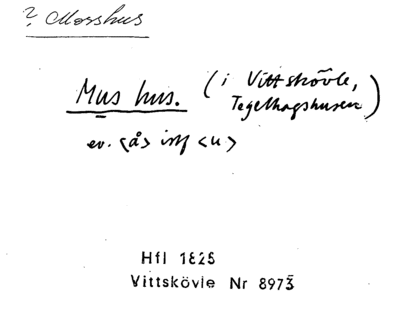 ? Mosshus
Mus hus. (i Vittskövle,
Tegelhagshusen)
ev. <å> istf <u>
Hfl 1825
Vittskövle Nr 8973